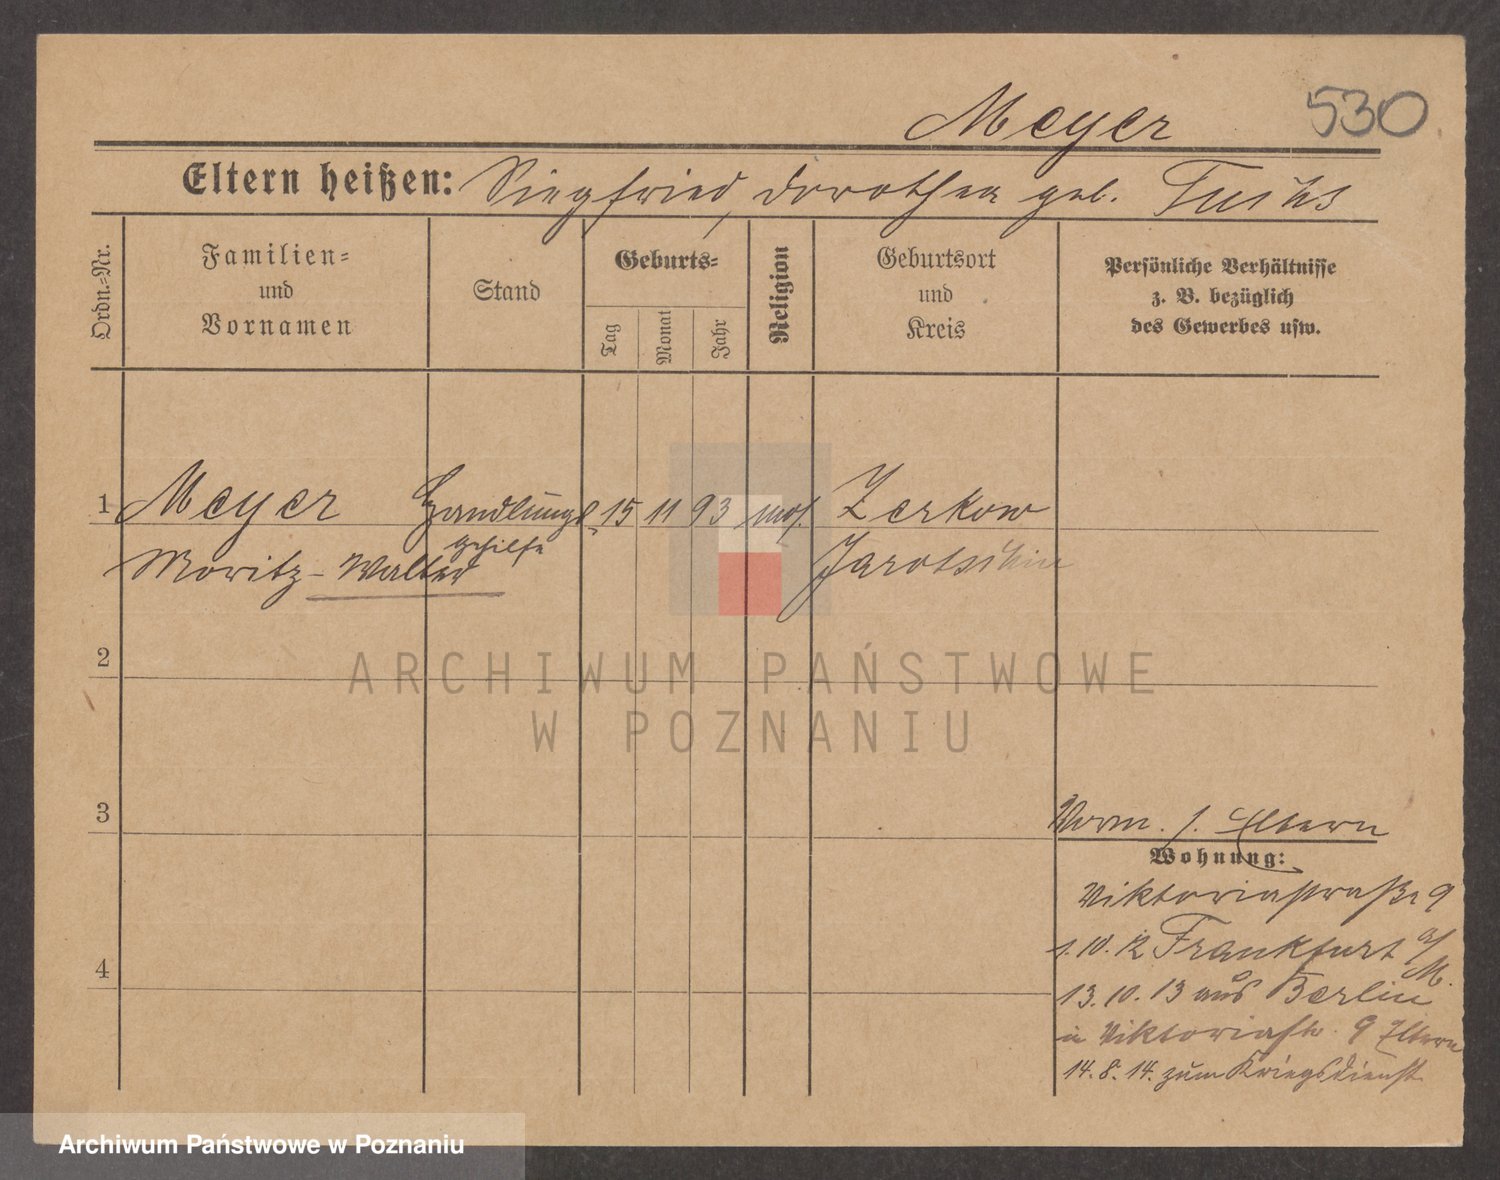 Meyer 530
Eltern heißen: Siegfried, Dorothea geb. Fuchs
Ordn.-Nr.
Familien-
und
Vornamen
Stand
Geburts-
Tag
Monat
Jahr
Religion
Geburtsort
und
Kreis
Persönliche Verhältnisse
z. B. bezüglich
des Gewerbes usw.
1 Meyer Handlungs- 15 11 93 mos. Zerkow
gehilfe
Moritz-Walter Jarotschin
2
ARCHIWUM PAŃSTWOWE
W POZNANIU
3
Vorm. s. Eltern
Wohnung:
Viktoriastraße 9
4
1.10.12 Frankfurt a/M.
13.10.13 aus Berlin
in Viktoriastr. 9 Eltern
14.8.14. zum Kriegsdienst
Archiwum Państwowe w Poznaniu